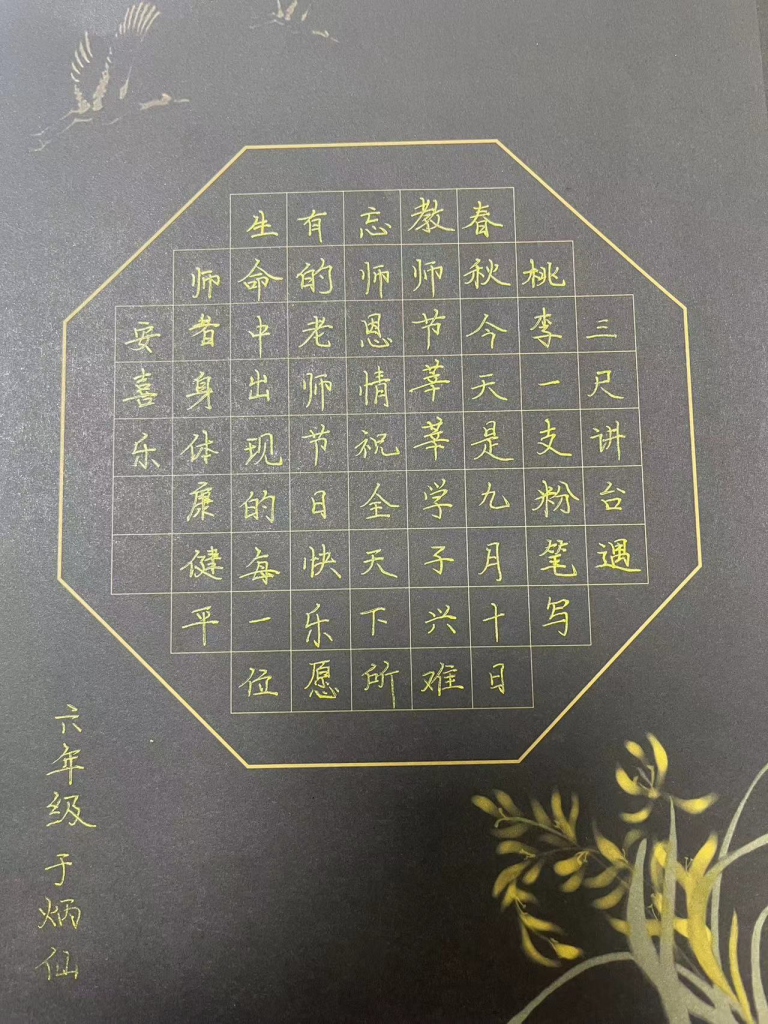 三尺讲台遇
桃李一支粉笔写
春秋今天是九月十日
教师节莘莘学子兴难
忘师恩情祝全天下所
有的老师节日快乐愿
生命中出现的每一位
师者身体康健平
安喜乐
六年级于炳仙